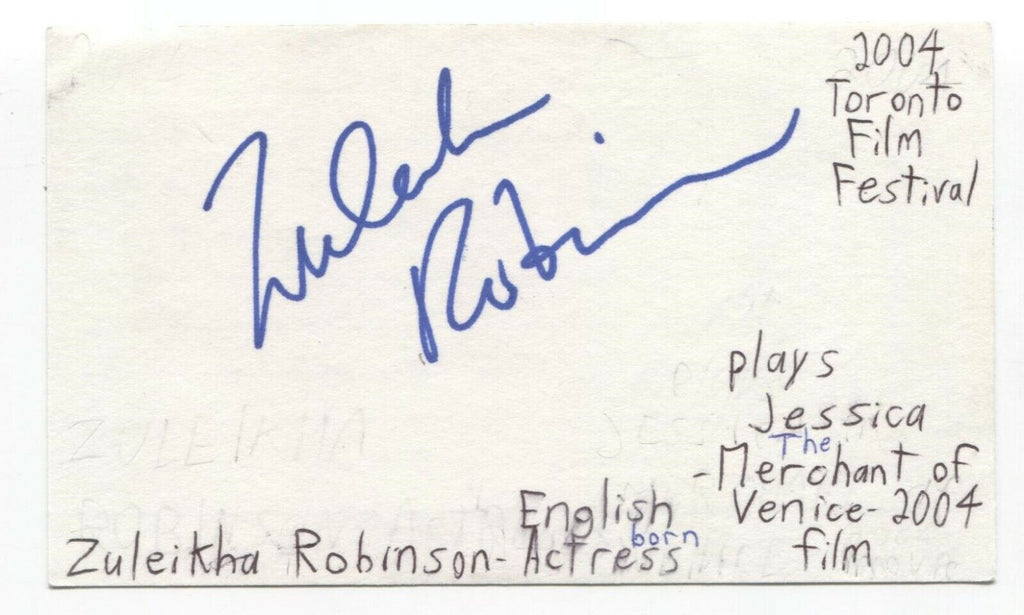 2004
Toronto
Film
Festival
Zuleikha
Robinson
plays
Jessica
The
-Merchant of
Venice-2004
film
English
born
Zuleikha Robinson-Actress
ZULEIKHA